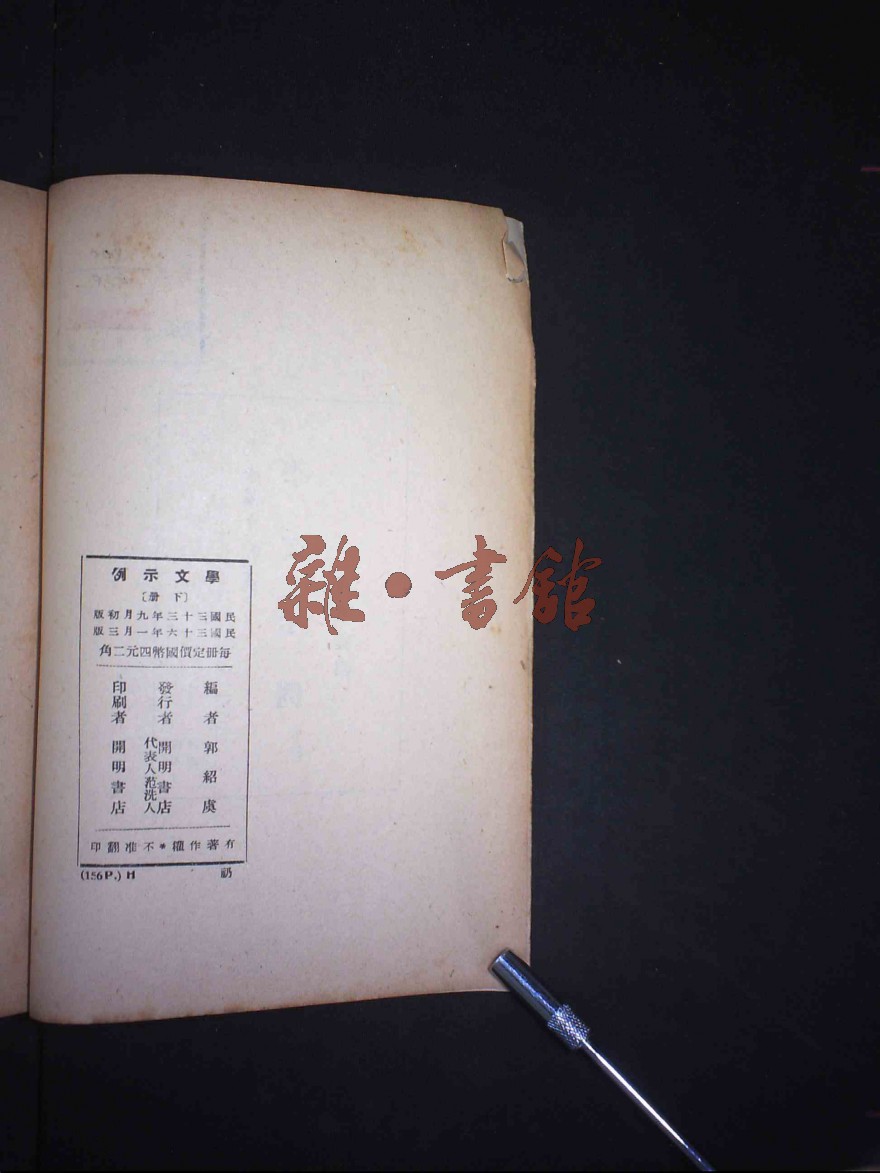 學文示例
〔下冊〕
民國三十三年九月初版
民國三十六年一月三版
每冊定價國幣四元二角
編者 郭紹虞
發行者 開明書店
代表人范洗人
印刷者 開明書店
有著作權*不准翻印
(156P.) H
雜·書館